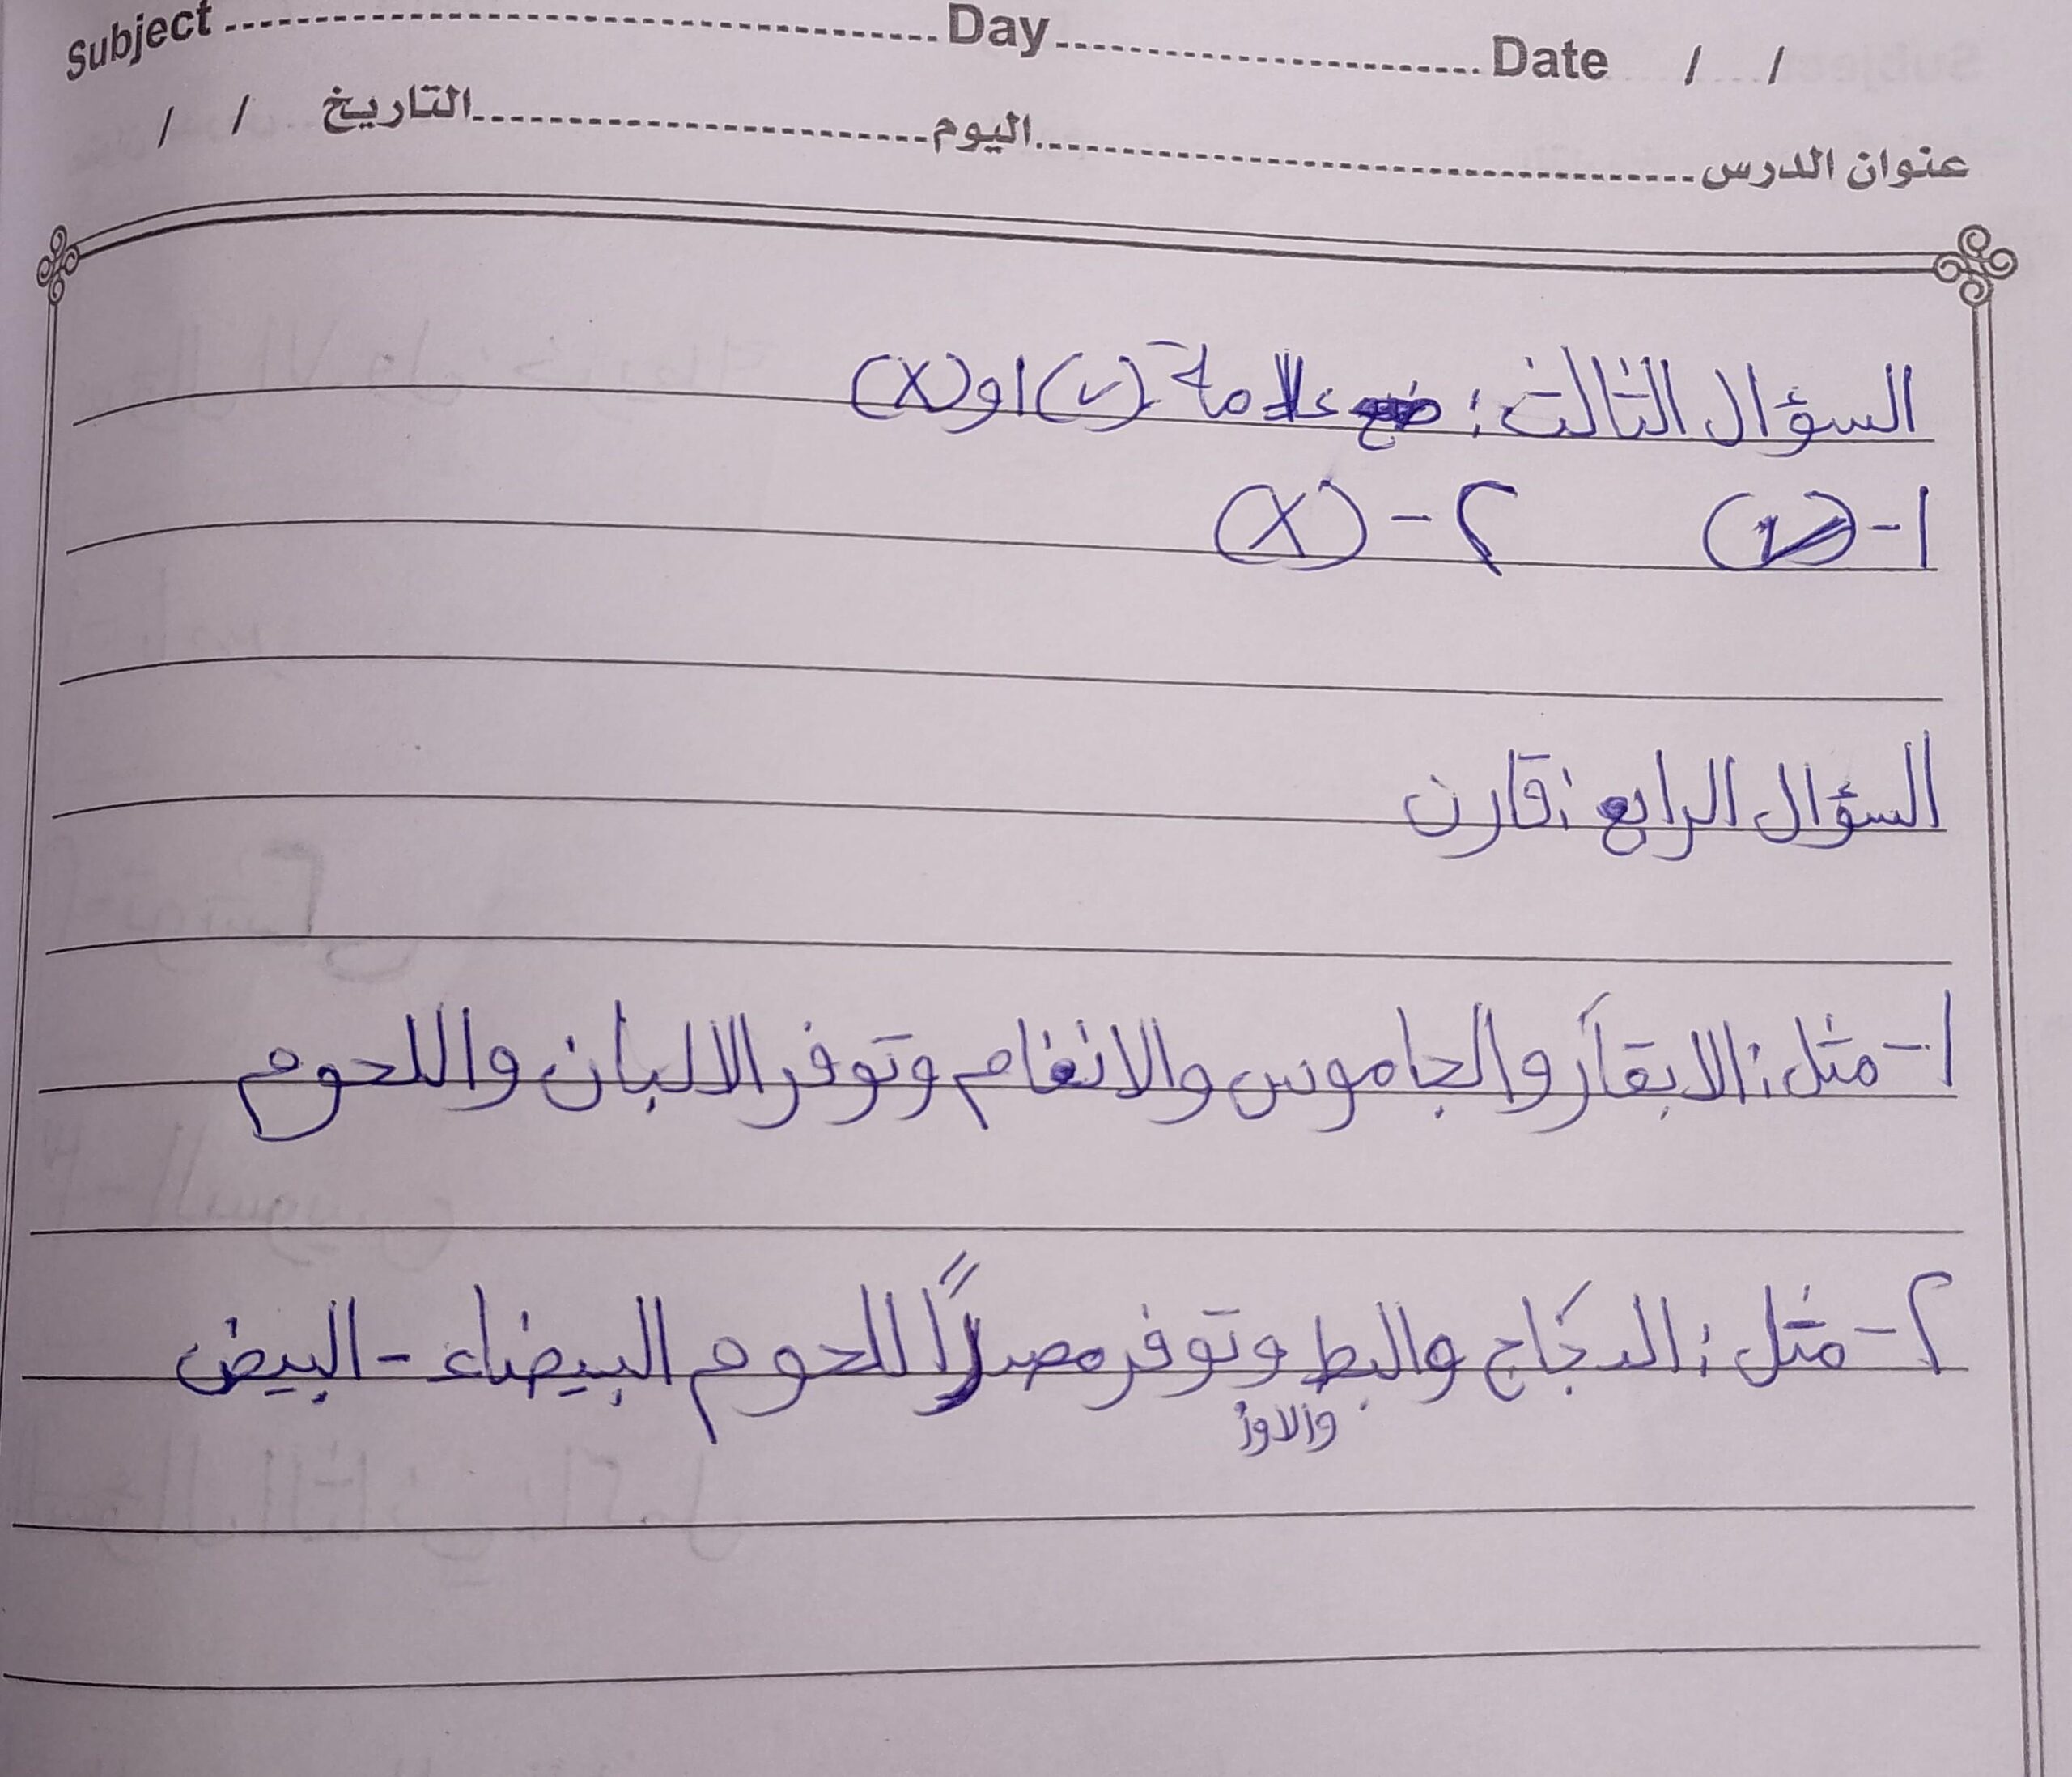 Subject Day Date / /
عنوان الدرس اليوم التاريخ / /
السؤال الثالث : ضع علامة (✓) او (X)
١- (✓) ٢- (X)
السؤال الرابع : قارن
١- مثل : الابقار والجاموس والانغام وتوفر الالبان واللحوم
٢- مثل : الدجاج والبط وتوفر مصدرًا للحوم البيضاء - البيض
والاوز